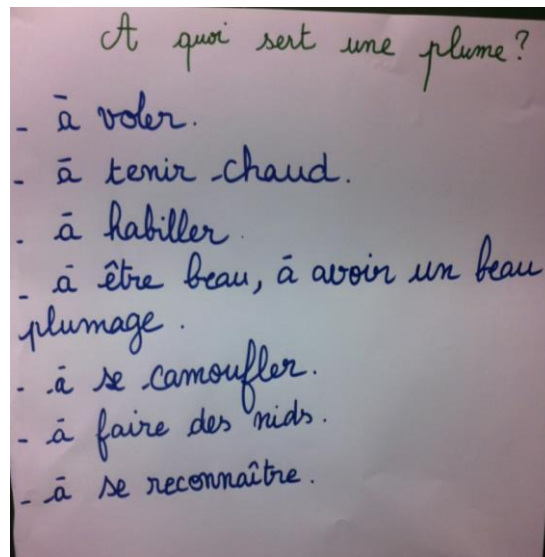 A quoi sert une plume?
- à voler.
- à tenir chaud.
- à habiller.
- à être beau, à avoir un beau
plumage.
- à se camoufler.
- à faire des nids.
- à se reconnaître.